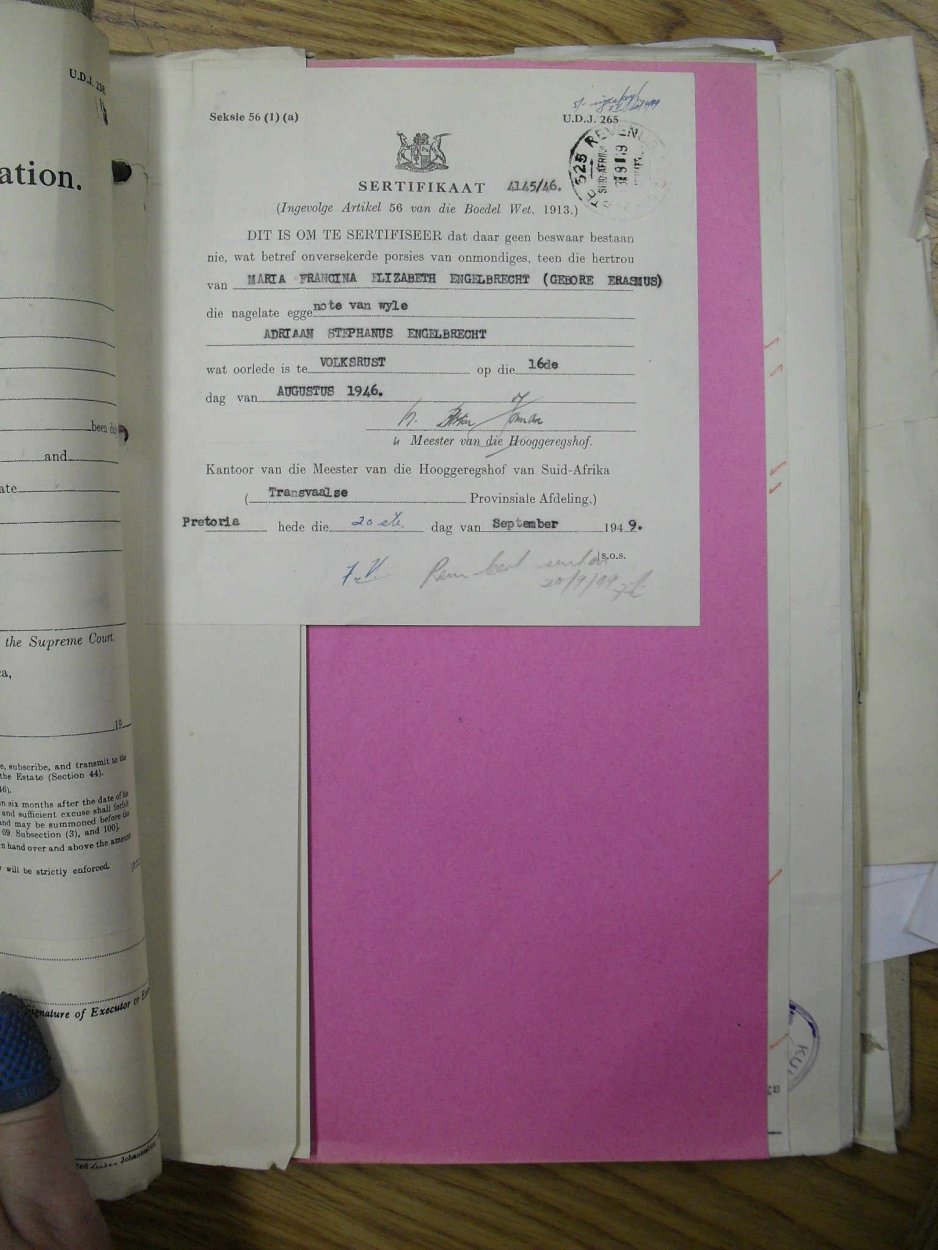 U.D.J. 238
ation.
been
and
ate
the Supreme Court.
a,
19
e, subscribe, and transmit to the
the Estate (Section 44).
46).
n six months after the date of his
and sufficient excuse shall forfeit
and may be summoned before the
69. Subsection (3), and 100).
n hand over and above the amount
will be strictly enforced.
Signature of Executor or
Johannesburg
Seksie 56 (1) (a)
U.D.J. 265
REVENUE
525
SUID-AFRIKA
SERTIFIKAAT 4145/46.
(Ingevolge Artikel 56 van die Boedel Wet, 1913.)
DIT IS OM TE SERTIFISEER dat daar geen beswaar bestaan
nie, wat betref onversekerde porsies van onmondiges, teen die hertrou
van MARIA FRANCINA ELIZABETH ENGELBRECHT (GEBORE ERASMUS)
die nagelate eggenote van wyle
ADRIAAN STEPHANUS ENGELBRECHT
wat oorlede is te VOLKSRUST op die 16de
dag van AUGUSTUS 1946.
Meester van die Hooggeregshof.
Kantoor van die Meester van die Hooggeregshof van Suid-Afrika
(Transvaalse Provinsiale Afdeling.)
Pretoria hede die 20ste dag van September 1949.
S.O.S.
20/9/49
KU